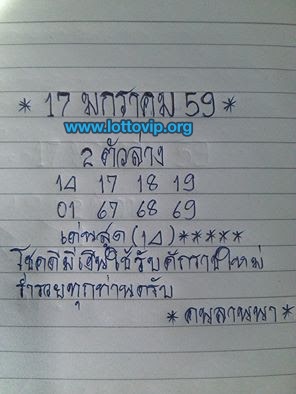 * 17 มกราคม 59 *
www.lottovip.org
2 ตัวล่าง
14 17 18 19
01 67 68 69
เด่นสุด (14) *****
โชคดีมีเงินใช้รับศักราชใหม่
ร่ำรวยทุกท่านครับ
* คนลานนา *